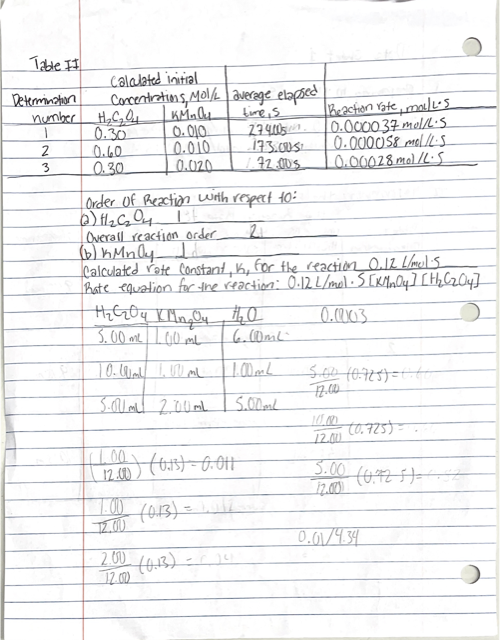 Table II
Calculated initial
Determination Concentrations, Mol/L average elapsed
number H₂C₂O₄ KMnO₄ time, s Reaction rate, mol/L·s
1 0.30 0.010 274.00s 0.000037 mol/L·s
2 0.60 0.010 173.00s 0.000058 mol/L·s
3 0.30 0.020 72.00s 0.00028 mol/L·s
Order of Reaction with respect to:
(a) H₂C₂O₄ 1
Overall reaction order 2
(b) KMnO₄ 1
Calculated rate constant, K, for the reaction 0.12 L/mol·s
Rate equation for the reaction: 0.12 L/mol·s [KMnO₄] [H₂C₂O₄]
H₂C₂O₄ KMn₂O₄ H₂O 0.0003
5.00 mL 1.00 mL 6.00 mL
10.00 mL 1.00 mL 1.00 mL 5.00/12.00 (0.725) =
5.00 mL 2.00 mL 5.00 mL
10.00/12.00 (0.725) =
(1.00/12.00) (0.13) = 0.011 5.00/12.00 (0.725) =
1.00/12.00 (0.13) =
0.01/4.34
2.00/12.00 (0.13) =